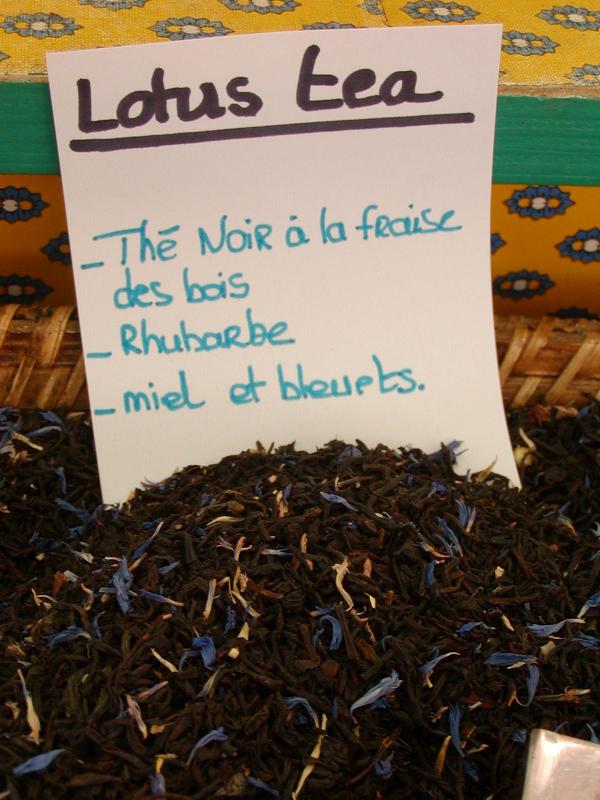 Lotus tea
- Thé Noir à la fraise
des bois
- Rhubarbe
- miel et bleuets.